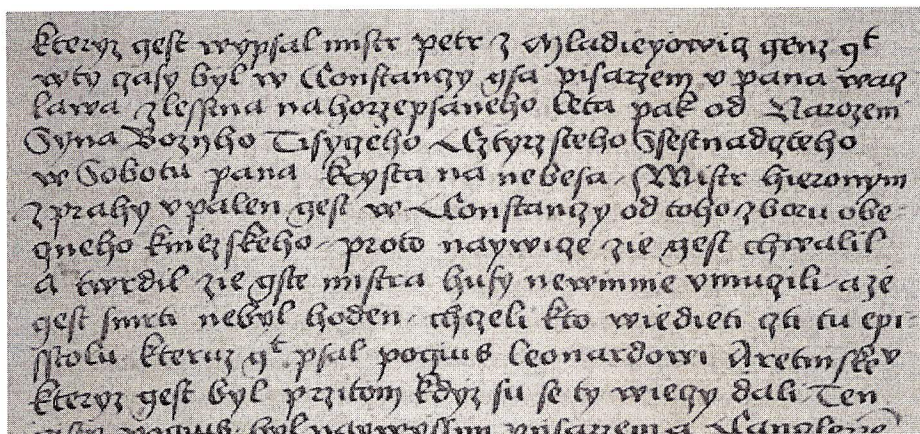 kteryz gest wypsal mistr petr z Mladieyowicz genz gt
w ty czasy byl w Constanczy gsa pisarzem v pana wacz
lawa z lesstna nahorzepsaneho Leta pak od Narozeni
Syna Bozyho Tisyczeho Cztyrzsteho Ssestnadczteho
w Sobotu pana krysta na nebesa Mistr hieronym
z prahy vpalen gest w Constanczy od toho zboru obe-
czneho kniezskeho proto naywicze zie gest chwalil
A twrdil zie gste mistra husy newinnie vmuczili a zie
gest smrti nebyl hoden chczeli kto wiedieti czti tu epi-
sstolu kteruz gt psal pogius Leonardowi Aretinskev
kteryz gest byl przitom kdyz su se ty wieczy dali Ten